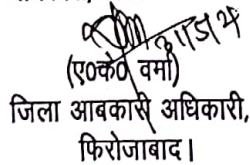 (ए०के० वर्मा)
जिला आबकारी अधिकारी,
फिरोजाबाद।